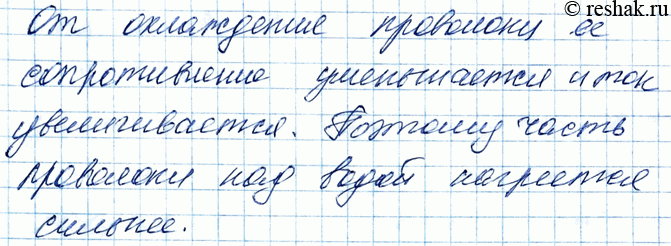 © reshak.ru
От охлаждение проволоки ее
сопротивление уменьшается и ток
увеличивается. Поэтому часть
проволоки над водой нагреется
сильнее.